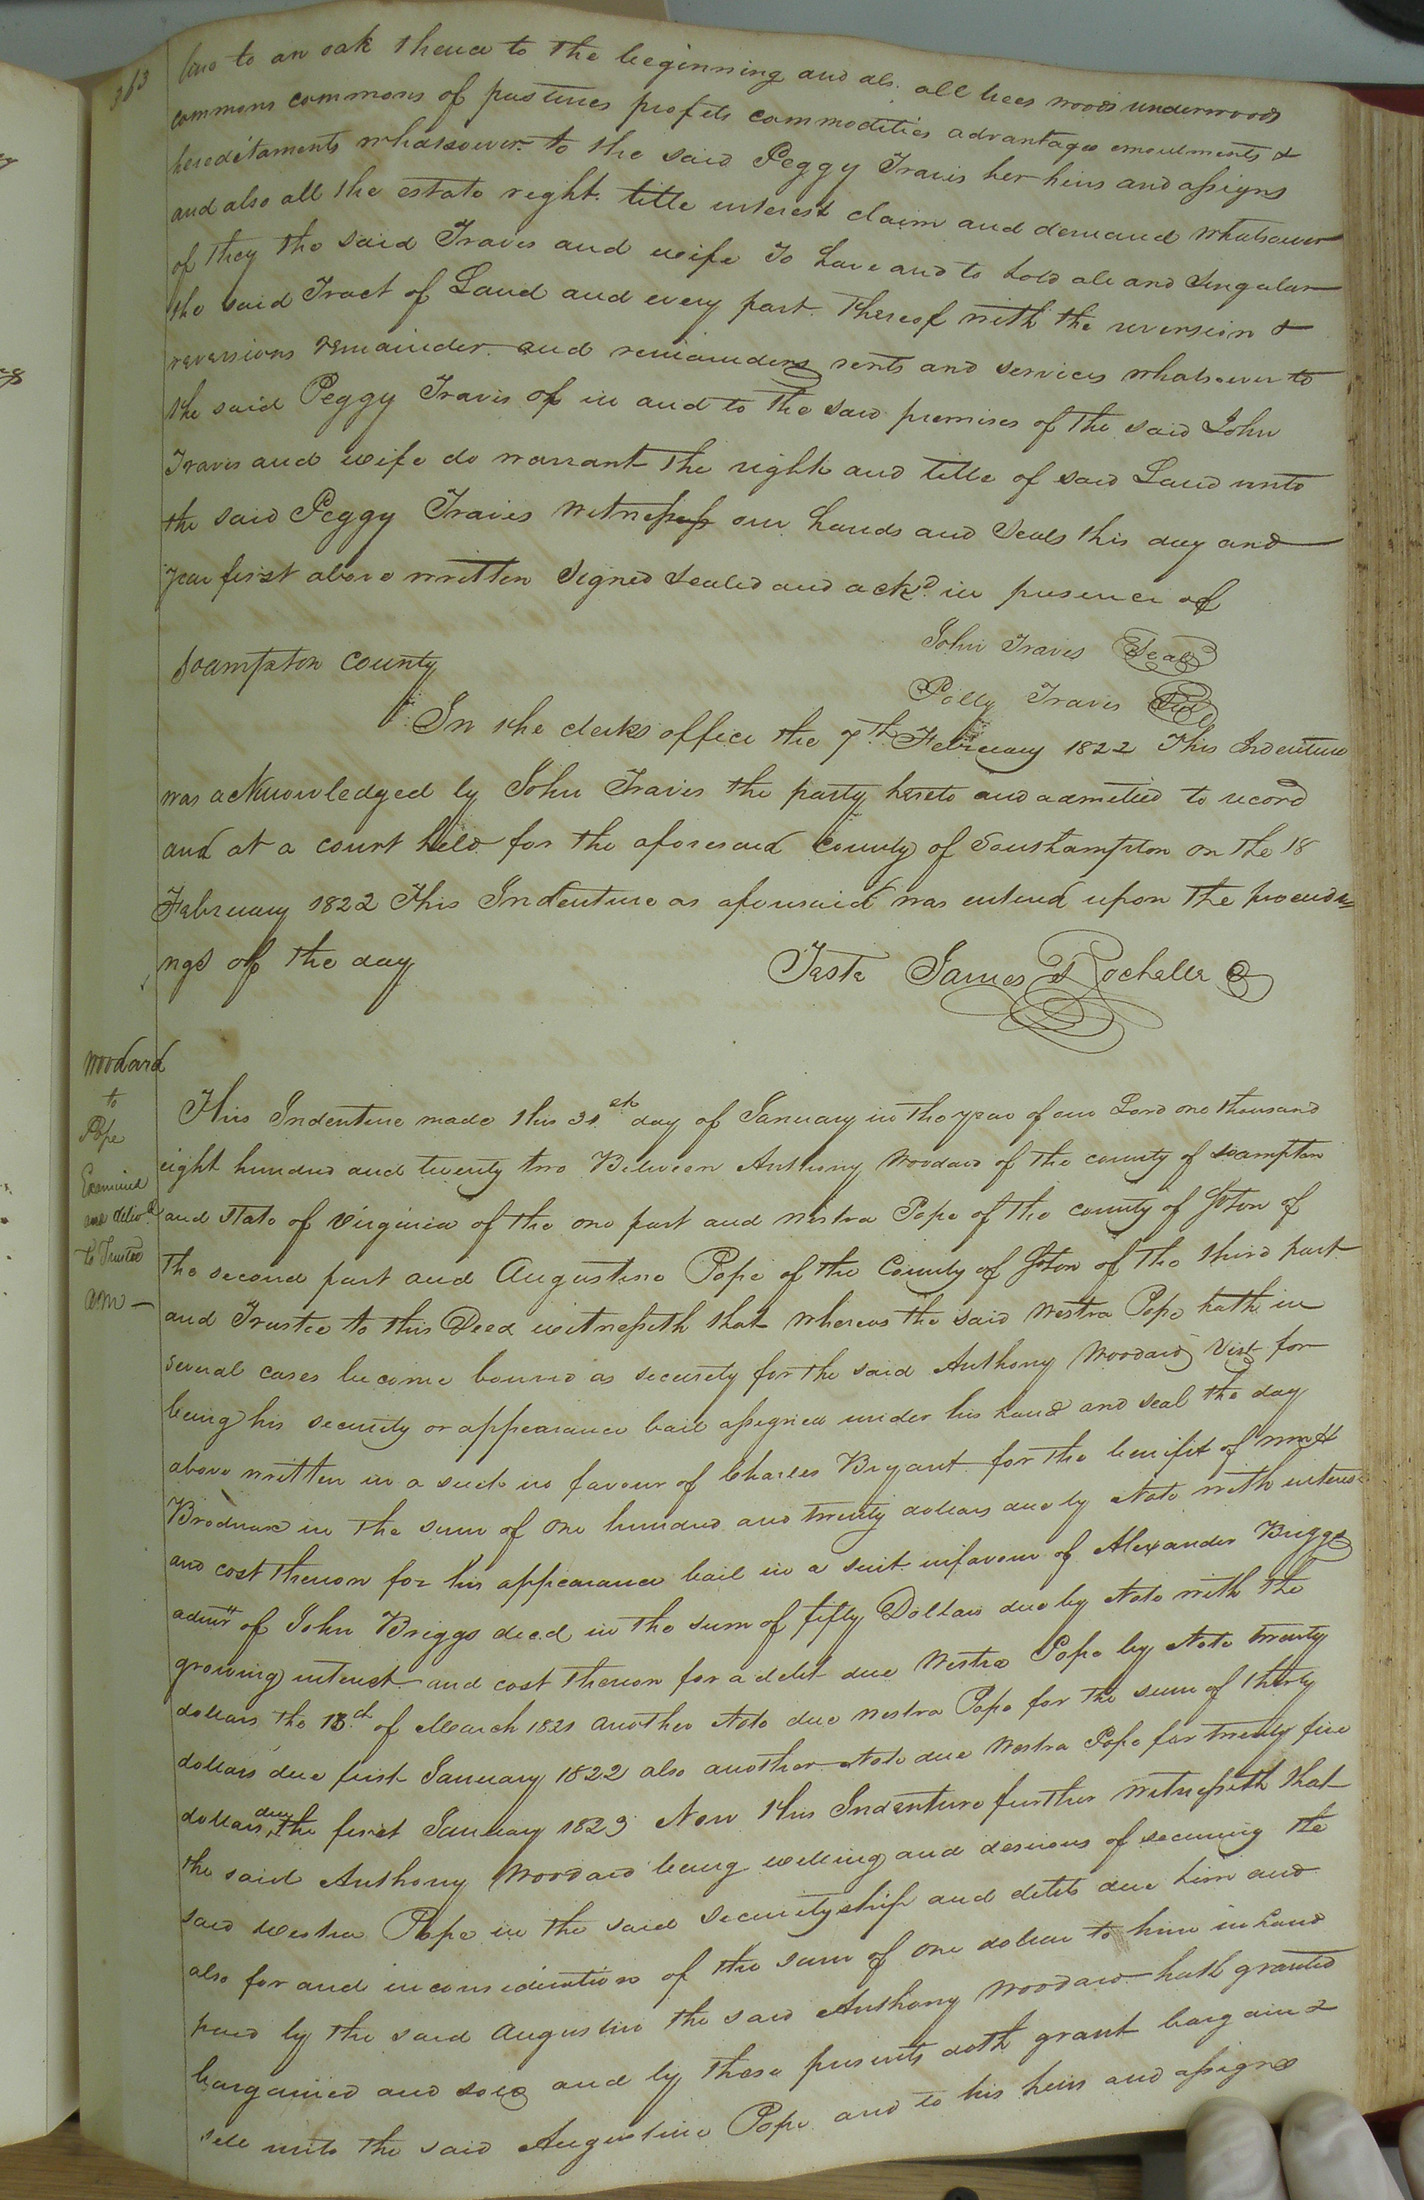 363
line to an oak thence to the beginning and als. all trees woods underwoods
commons commons of pastures profits commodities advantages emoulments &
hereditaments whatsoever to the said Peggy Travis her heirs and assigns
and also all the estate right title interest claim and demand whatsoever
of they the said Travis and wife To have and to hold all and Singular
the said Tract of Land and every part thereof with the reversion &
reversions remainder and remainders rents and services whatsoever to
the said Peggy Travis of in and to the said premises of the said John
Travis and wife do warrant the right and title of said Land unto
the said Peggy Travis witness our hands and seals this day and
year first above written Signed Sealed and ackd in presence of
John Travis Seal
Polly Travis Seal
Soampton County
In the clerks office the 7th February 1822 This Indenture
was acknowledged by John Travis the party hereto and admitted to record
and at a court held for the aforesaid County of Southampton on the 18
February 1822 This Indenture as aforesaid was entered upon the proceedi=
ngs of the day
Teste James Rochelle C
Woodard
to
Pope
Examined
and delivd
to Trustee
This Indenture made this 31st day of January in the year of our Lord one thousand
eight hundred and twenty two Between Anthony Woodard of the county of Soampton
and State of Virginia of the one part and Westra Pope of the county of Ston of
the second part and Augustine Pope of the County of Ston of the third part
and Trustee to this Deed witnesseth that whereas the said Westra Pope hath in
several cases become bound as security for the said Anthony Woodard Vizt for
being his security or appearance bail assigned under his hand and seal the day
above written in a suit in favour of Charles Bryant for the benifit of Wm H
Brodnax in the sum of one hundred and twenty dollars due by Note with interest
and cost thereon for his appearance bail in a suit infavour of Alexander Briggs
admr of John Briggs decd in the sum of fifty Dollars due by Note with the
growing interest and cost thereon for a debt due Westra Pope by Note twenty
dollars the of March 1821 another Note due Westra Pope for the sum of thirty
dollars due first January 1822 also another Note due Westra Pope for twenty five
dollars due the first January 1823 Now this Indenture further witnesseth that
the said Anthony Woodard being willing and desirous of securing the
said Westra Pope in the said securityship and debts due him and
also for and inconsideration of the sum of one dollar to him in hand
paid by the said Augustine the said Anthony Woodard hath granted
bargained and sold and by these presents doth grant bargain &
sell unto the said Augustine Pope and to his heirs and assigns